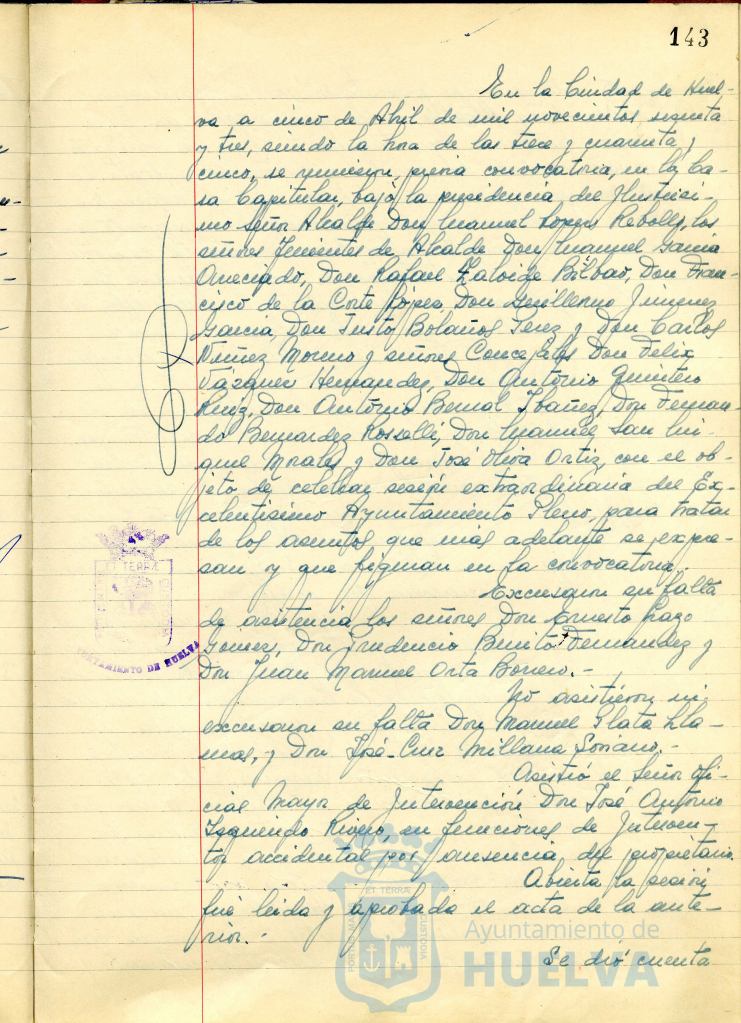 143
En la Ciudad de Huel-
va a cinco de Abril de mil novecientos sesenta
y tres, siendo la hora de las trece y cuarenta y
cinco, se reunieron, previa convocatoria, en la Ca-
sa Capitular, bajo la presidencia del Ilustrisi-
mo Señor Alcalde Don Manuel López Rebollo, los
señores Tenientes de Alcalde Don Manuel Garcia
Don Rafael Bilbao, Don Fran-
cisco de la Corte López, Don Guillermo Jimenez
Garcia, Don Justo Bolaños Perez y Don Carlos
Núñez Moreno y señores Concejales Don Felix
Vázquez Hernandez, Don Antonio Quintero
Ruiz, Don Antonio Bernal Ibañez, Don Fernan-
do Bermudez Rosselli, Don Manuel San Mi-
guel Morales y Don José Oliva Ortiz, con el ob-
jeto de celebrar sesión extraordinaria del Ex-
celentisimo Ayuntamiento Pleno, para tratar
de los asuntos que más adelante se expre-
san y que figuran en la convocatoria.
Excusaron su falta
de asistencia los señores Don Ernesto Lazo
Gomez, Don Prudencio Benito Fernandez y
Don Juan Manuel Orta Borrero.-
No asistieron ni
excusaron su falta Don Manuel Plata Lla-
mas, y Don José-Cruz Millana Soriano.-
Asistió el Señor Ofi-
cial Mayor de Intervención Don José Antonio
Izquierdo Rivero, en funciones de Interven-
tor accidental por ausencia del propietario.
Abierta la sesión
fué leida y aprobada el acta de la ante-
rior.-
Se dió cuenta
ET TERRÆ
AYUNTAMIENTO DE HUELVA
ET TERRÆ
PORTUS MARIS
CUSTODIA
Ayuntamiento de
HUELVA